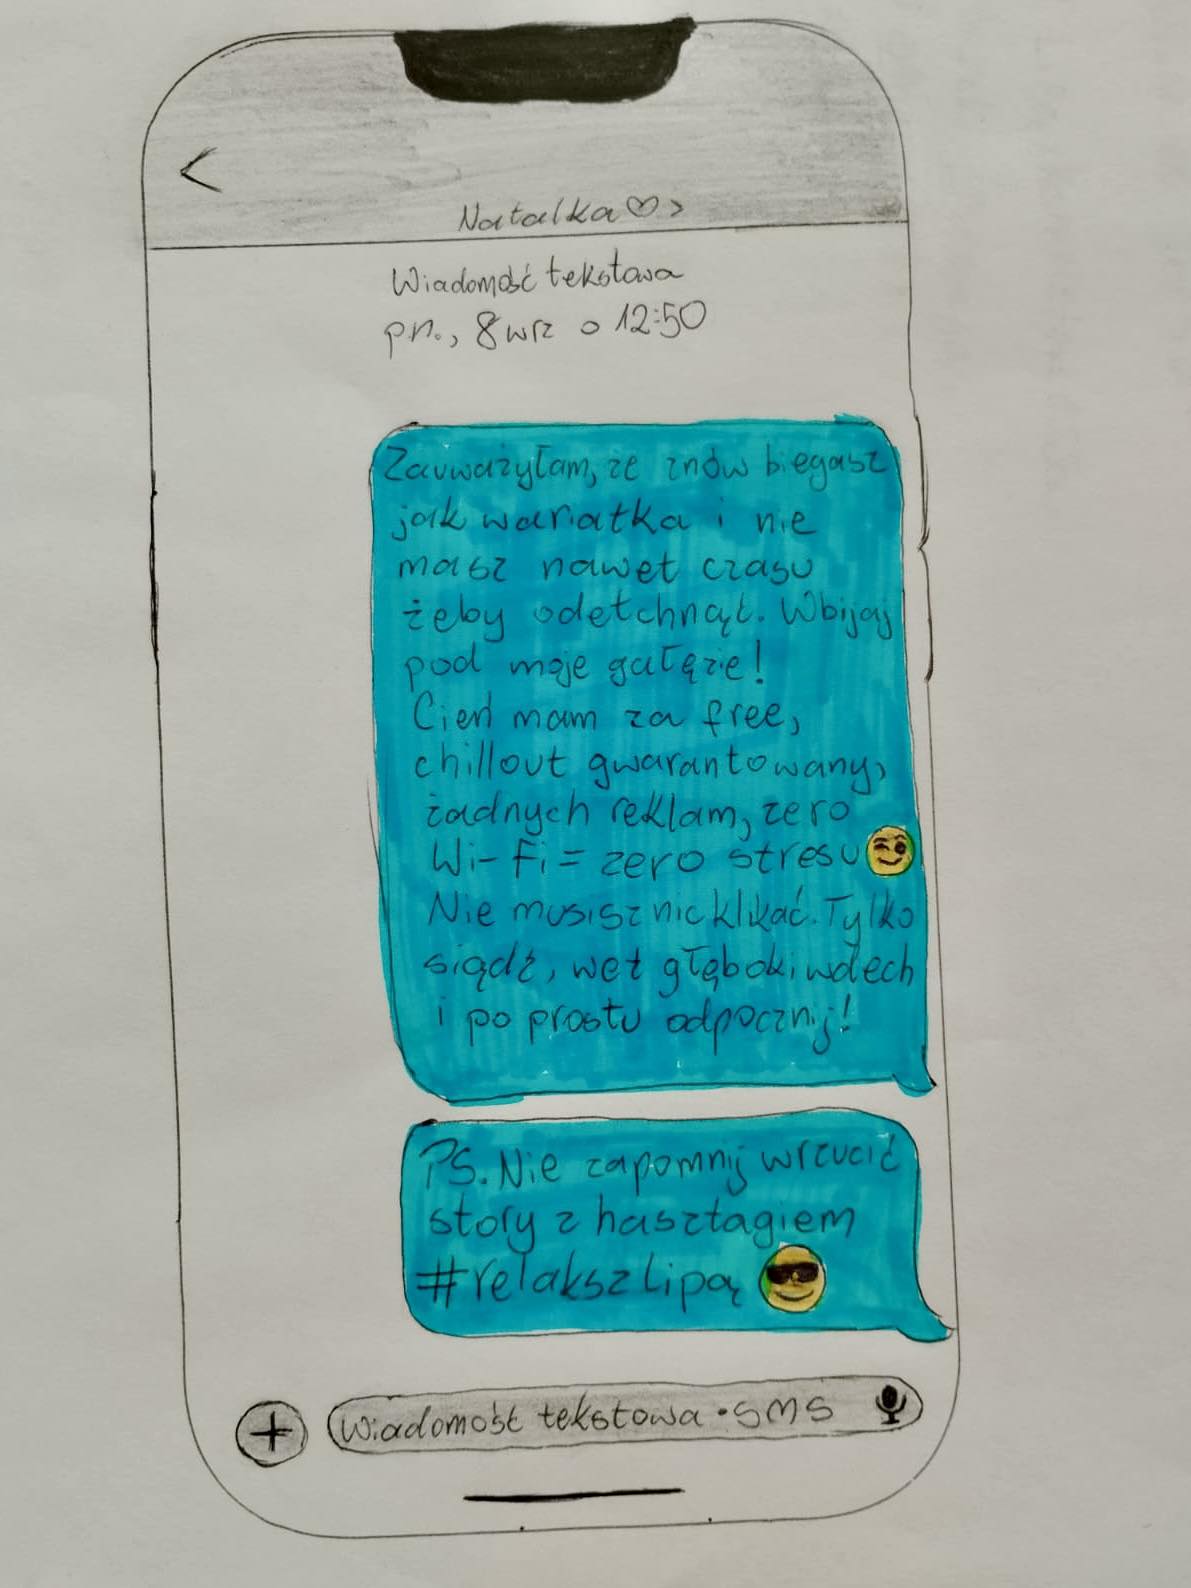 <
Natalka♡>
Wiadomość tekstowa
pn., 8 wrz o 12:50
Zauważyłam, że znów biegasz
jak wariatka i nie
masz nawet czasu
żeby odetchnąć. Wbijaj
pod moje gałęzie!
Cień mam za free,
chillout gwarantowany,
żadnych reklam, zero
Wi-Fi = zero stresu😉
Nie musisz nic klikać. Tylko
siądź, weź głęboki wdech
i po prostu odpocznij!
PS. Nie zapomnij wrzucić
story z hasztagiem
#relakszlipą 😎
+ Wiadomość tekstowa • SMS